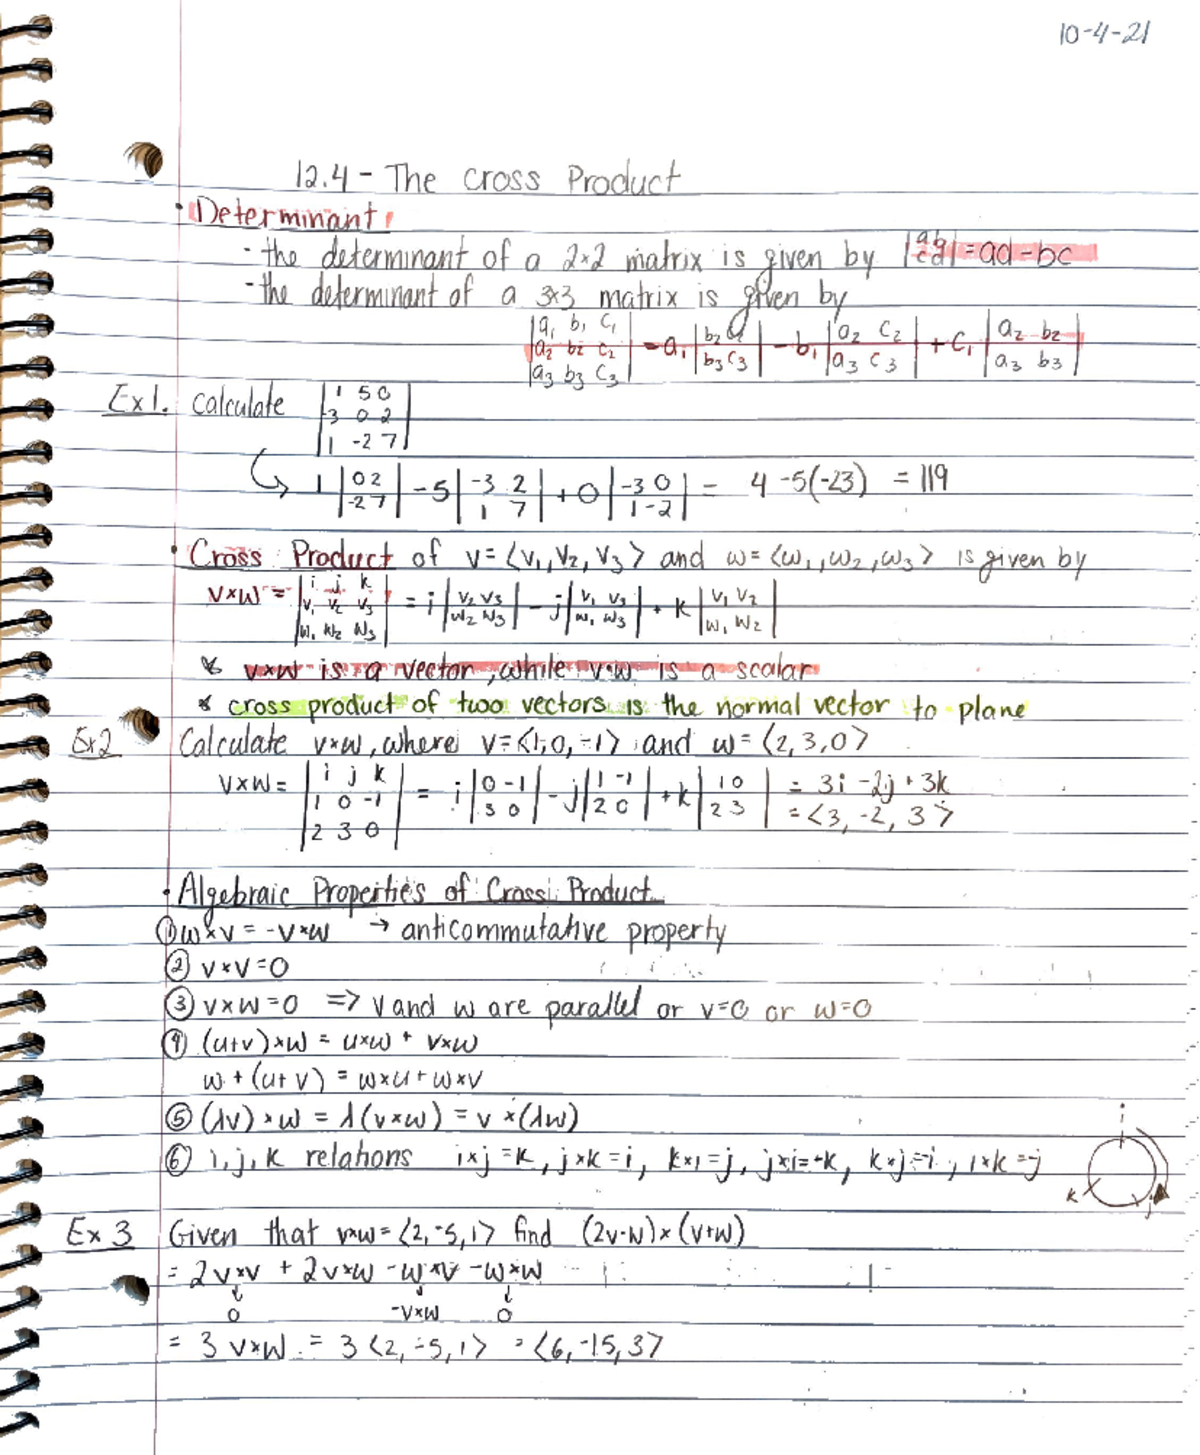 10-4-21
12.4 - The Cross Product
• Determinant
- the determinant of a 2×2 matrix is given by |a b; c d| = ad - bc
- the determinant of a 3×3 matrix is given by
|a₁ b₁ c₁; a₂ b₂ c₂; a₃ b₃ c₃| = a₁ |b₂ c₂; b₃ c₃| - b₁ |a₂ c₂; a₃ c₃| + c₁ |a₂ b₂; a₃ b₃|
Ex1. Calculate |1 5 0; -3 0 2; 1 -2 7|
↪ 1 |0 2; -2 7| - 5 |-3 2; 1 7| + 0 |-3 0; 1 -2| = 4 - 5(-23) = 119
• Cross Product of v = ⟨v₁, v₂, v₃⟩ and w = ⟨w₁, w₂, w₃⟩ is given by
v×w = |i j k; v₁ v₂ v₃; w₁ w₂ w₃| = i |v₂ v₃; w₂ w₃| - j |v₁ v₃; w₁ w₃| + k |v₁ v₂; w₁ w₂|
* v×w is a vector, while v·w is a scalar
* cross product of two vectors is the normal vector to plane
Ex2 Calculate v×w, where v = ⟨1, 0, -1⟩ and w = ⟨2, 3, 0⟩
v×w = |i j k; 1 0 -1; 2 3 0| = i |0 -1; 3 0| - j |1 -1; 2 0| + k |1 0; 2 3| = 3i - 2j + 3k
= ⟨3, -2, 3⟩
• Algebraic Properties of Cross Product
① w×v = -v×w → anticommutative property
② v×v = 0
③ v×w = 0 => v and w are parallel or v=0 or w=0
④ (u+v)×w = u×w + v×w
w + (u+v) = w×u + w×v
⑤ (λv)×w = λ(v×w) = v×(λw)
⑥ i, j, k relations i×j = k, j×k = i, k×i = j, j×i = -k, k×j = -i, i×k = -j
i
k j
Ex 3 Given that v×w = ⟨2, -5, 1⟩ find (2v-w)×(v+w)
= 2v×v + 2v×w - w×v - w×w
0 -v×w 0
= 3 v×w = 3 ⟨2, -5, 1⟩ = ⟨6, -15, 3⟩